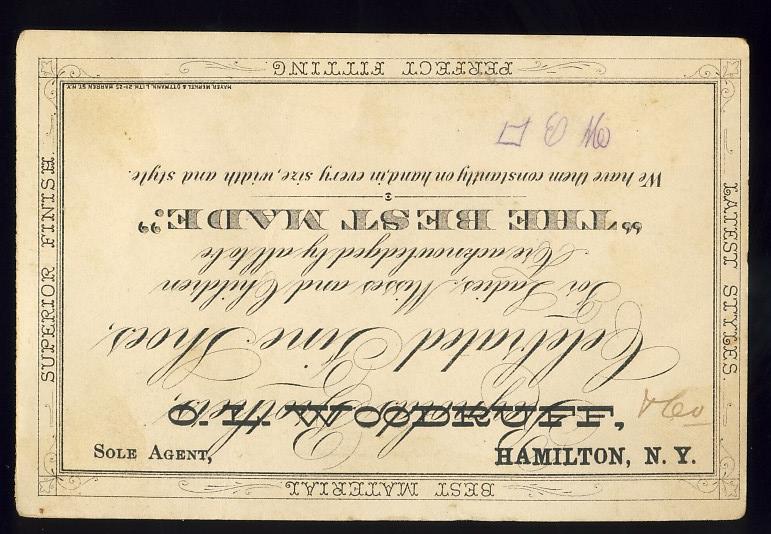 BEST MATERIAL
Reynolds Brothers,
Celebrated Fine Shoes,
For Ladies, Misses and Children
Are acknowledged by all to be
"THE BEST MADE."
We have them constantly on hand, in every size, width and style.
MAYER, MERKEL & OTTMANN, LITH. 21-25 WARREN ST. N.Y.
PERFECT FITTING.
SUPERIOR FINISH.
LATEST STYLES.
O. L. WOODRUFF, & Co
SOLE AGENT, HAMILTON, N. Y.